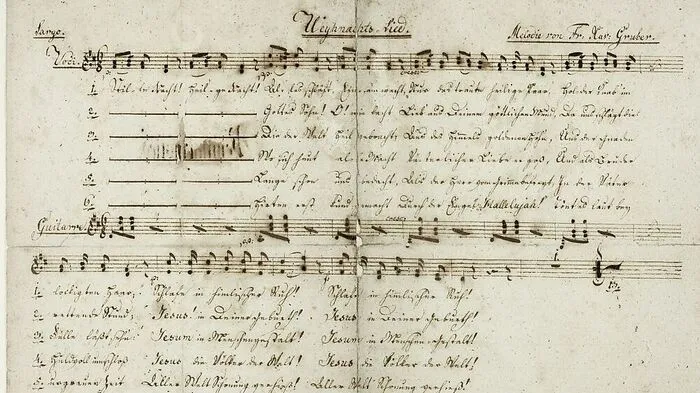 Largo. Weyhnachts-Lied. Melodie von Fr. Xav. Gruber.
Voci.
1. Stille Nacht! Heilige Nacht! Alles schläft, Einsam wacht, Nur das traute heilige Paar, Holder Knab im
2. Gottes Sohn! O! wie lacht Lieb aus Deinem göttlichen Mund, Da uns schlägt die
3. Die der Welt Heil gebracht, Aus des Himmels goldenen Höhn, Aus der Gnaden
4. Wo sich heut alle Macht Väterlicher Liebe ergoß, Und als Bruder
5. Lange schon uns bedacht, Als der Herr vom Grimme befreyt, In der Väter
6. Hirten erst kundgemacht Durch der Engel Hallelujah! Tönt es laut bey
Guitarre.
1. lockigten Haar, Schlafe in himlischer Ruh! Schlafe in himlischer Ruh!
2. rettende Stund, Jesus in Deiner Geburth! Jesus in Deiner Geburth!
3. Fülle läßt sehn! Jesum in Menschengestalt! Jesum in Menschengestalt!
4. Huldvoll umschloß Jesus die Völker der Welt! Jesus die Völker der Welt!
5. urgrauer Zeit Aller Welt Schonung verhieß! Aller Welt Schonung verhieß!